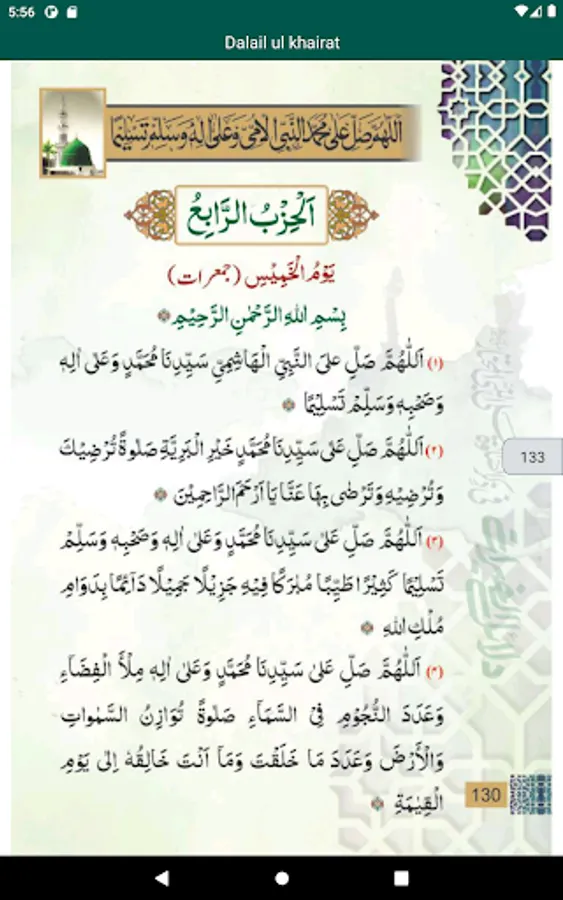 5:56
Dalail ul khairat
اَللّٰهُمَّ صَلِّ عَلٰى مُحَمَّدِ النَّبِيِّ الْاُمِّيِّ وَعَلٰى اٰلِهٖ وَسَلِّمْ تَسْلِيْمًا
اَلْحِزْبُ الرَّابِعُ
يَوْمُ الْخَمِيْسِ (جمعرات)
بِسْمِ اللّٰهِ الرَّحْمٰنِ الرَّحِيْمِ
(۱) اَللّٰهُمَّ صَلِّ عَلَى النَّبِيِّ الْهَاشِمِيِّ سَيِّدِنَا مُحَمَّدٍ وَعَلٰى اٰلِهٖ
وَصَحْبِهٖ وَسَلِّمْ تَسْلِيْمًا
(۲) اَللّٰهُمَّ صَلِّ عَلٰى سَيِّدِنَا مُحَمَّدٍ خَيْرِ الْبَرِيَّةِ صَلٰوةً تُرْضِيْكَ
وَتُرْضِيْهِ وَتَرْضٰى بِهَا عَنَّا يَا اَرْحَمَ الرَّاحِمِيْنَ
133
(۳) اَللّٰهُمَّ صَلِّ عَلٰى سَيِّدِنَا مُحَمَّدٍ وَعَلٰى اٰلِهٖ وَصَحْبِهٖ وَسَلِّمْ
تَسْلِيْمًا كَثِيْرًا طَيِّبًا مُبٰرَكًا فِيْهِ جَزِيْلًا جَمِيْلًا دَآئِمًا بِدَوَامِ
مُلْكِ اللّٰهِ
(۴) اَللّٰهُمَّ صَلِّ عَلٰى سَيِّدِنَا مُحَمَّدٍ وَعَلٰى اٰلِهٖ مِلْأَ الْفِضَاءِ
وَعَدَدَ النُّجُوْمِ فِي السَّمَاءِ صَلٰوةً تُوَازِنُ السَّمٰوَاتِ
وَالْأَرْضَ وَعَدَدَ مَا خَلَقْتَ وَمَا اَنْتَ خَالِقُهٗ اِلٰى يَوْمِ
الْقِيٰمَةِ
130